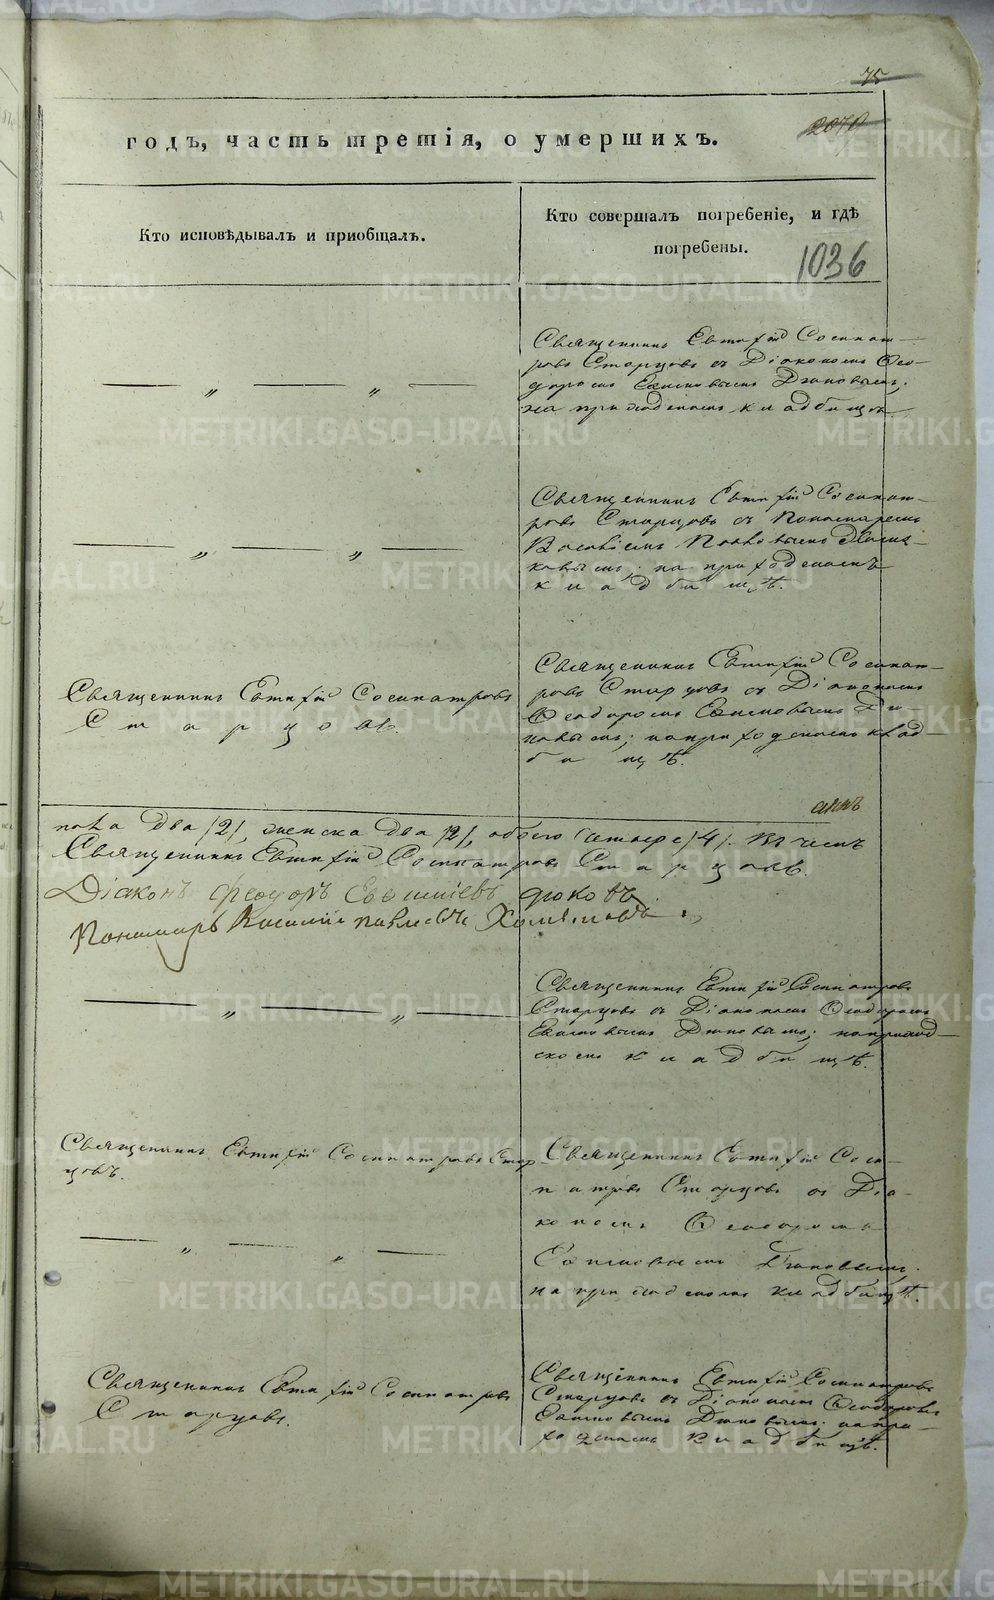 75
2070
годъ, часть третія, о умершихъ.
Кто исповѣдывалъ и пріобщалъ.
Кто совершалъ погребеніе, и гдѣ
погребены.
1036
Священникъ Евтифій Сосипат-
ровъ Старцовъ съ Діакономъ Ѳео-
доромъ
на приходскомъ кладбищѣ.
Священникъ Евтифій Сосипат-
ровъ Старцовъ съ Пономаремъ
Василіемъ Павловымъ
на приходскомъ
кладбищѣ.
Священникъ Евтифій Сосипатровъ
Старцовъ.
Священникъ Евтифій Сосипат-
ровъ Старцовъ съ Діакономъ
Ѳеодоромъ
на приходскомъ клад-
бищѣ.
два /2/, женска два /2/, обоего четыре /4/. Въ чемъ
Священникъ Евтифій Сосипатровъ Старцовъ.
Діаконъ Феодоръ
Пономарь Василій Павловъ
Священникъ Евтифій Сосипатровъ
Старцовъ съ Діакономъ Ѳеодоромъ
на приход-
скомъ кладбищѣ.
Священникъ Евтифій Сосипатровъ Стар-
цовъ.
Священникъ Евтифій Соси-
патровъ Старцовъ съ Діа-
кономъ Ѳеодоромъ
на приходскомъ кладбищѣ.
Священникъ Евтифій Сосипатровъ
Старцовъ.
Священникъ Евтифій Сосипатровъ
Старцовъ съ Діакономъ Ѳеодоромъ
на при-
ходскомъ кладбищѣ.
METRIKI.GASO-URAL.RU